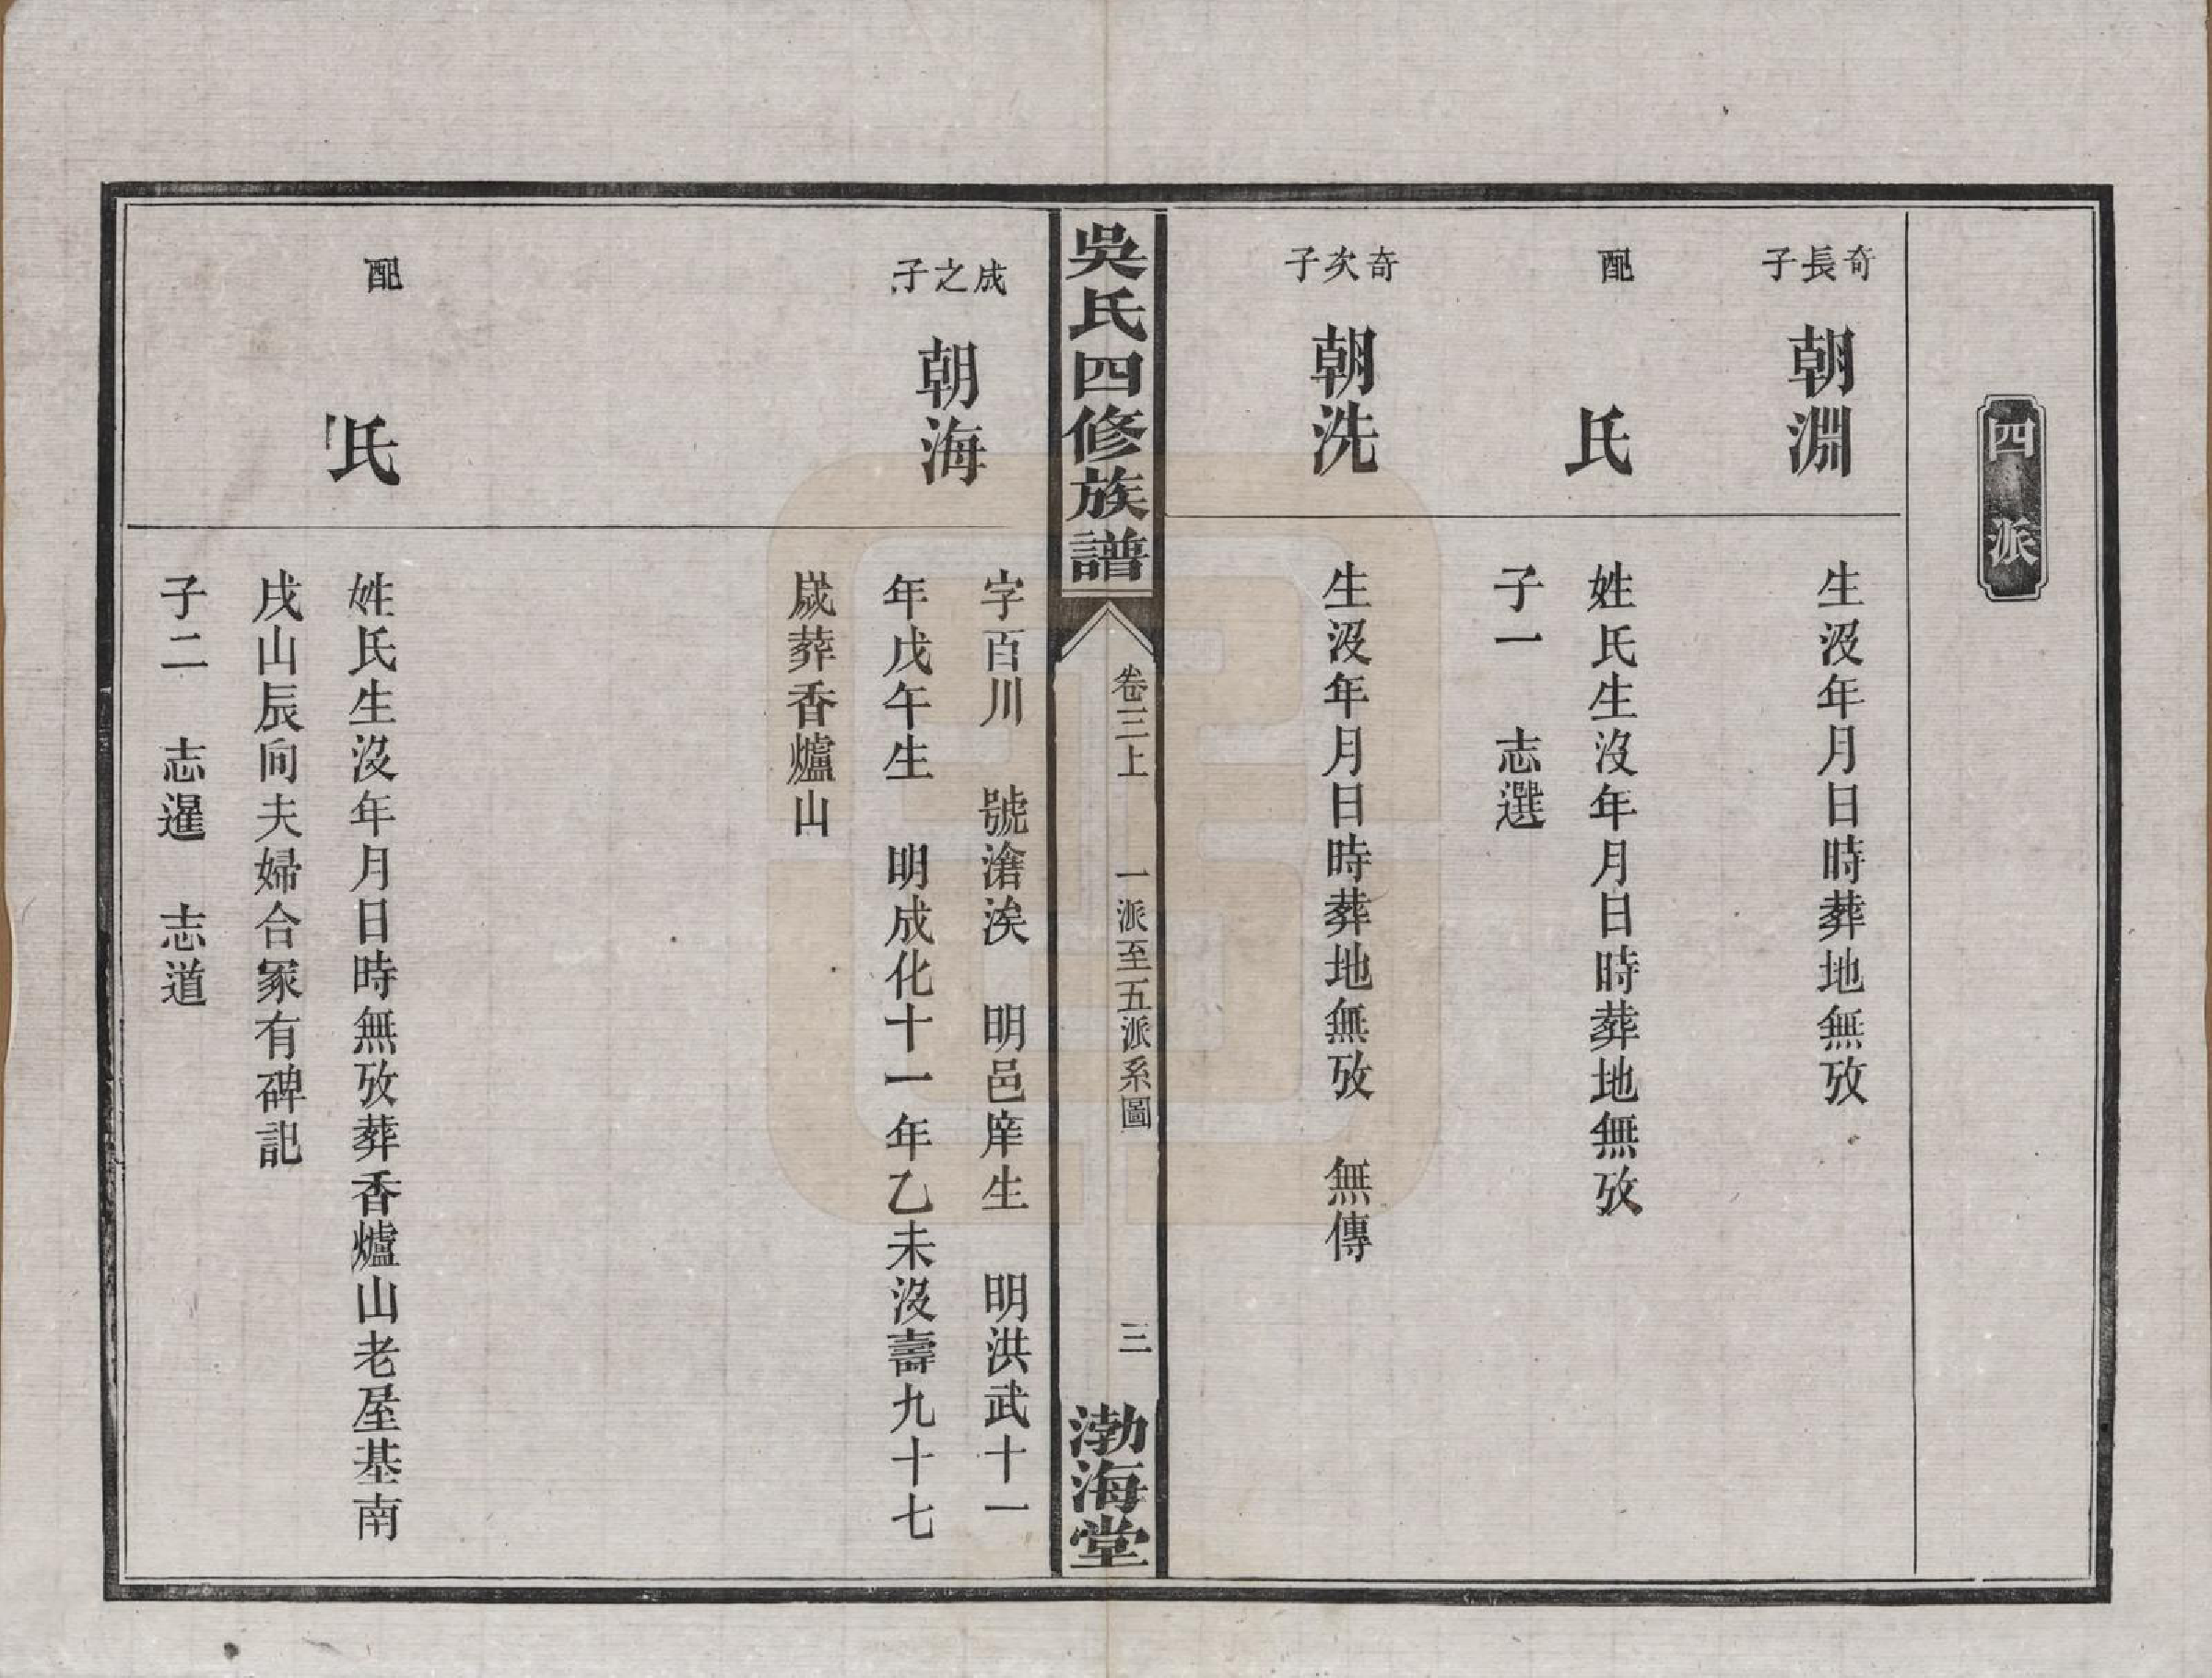 四派
奇長子
朝淵
生没年月日時葬地無攷
配
氏
姓氏生没年月日時葬地無攷
子一　志選
奇次子
朝洗
生没年月日時葬地無攷　無傳
吳氏四修族譜
卷三上　一派至五派系圖
三
渤海堂
成之子
朝海
字百川　號滄涘　明邑庠生　明洪武十一
年戊午生　明成化十一年乙未没壽九十七
歲葬香爐山
配
氏
姓氏生没年月日時無攷葬香爐山老屋基南
戌山辰向夫婦合冢有碑記
子二　志暹　志道